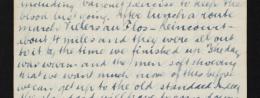 including various exercise to keep the
blood in going. After lunch a route
march. Villers au Flos - Reincourt -
about 10 miles and they were all out
to it by the time we finished up. The day
was warm and the men soft showing
that we want much more of this before
we can get up to the old standard. Indeed